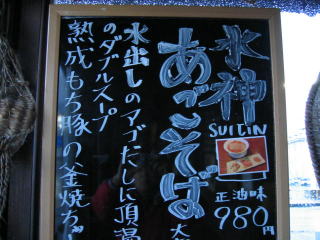 水神
SUITIN
あごそば
正油味
980円
水出しのアゴだしに頂湯
のダブルスープ
熟成もち豚の釜焼ちゃ